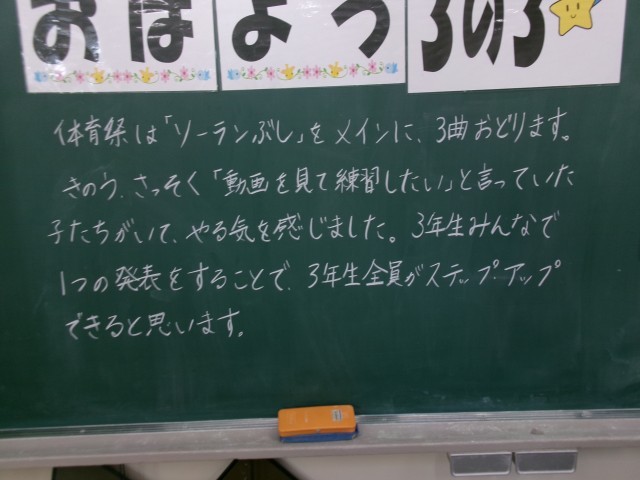 おはよう 3の3
体育祭は「ソーランぶし」をメインに、3曲おどります。
きのう、さっそく「動画を見て練習したい」と言っていた
子たちがいて、やる気を感じました。3年生みんなで
1つの発表をすることで、3年生全員がステップアップ
できると思います。